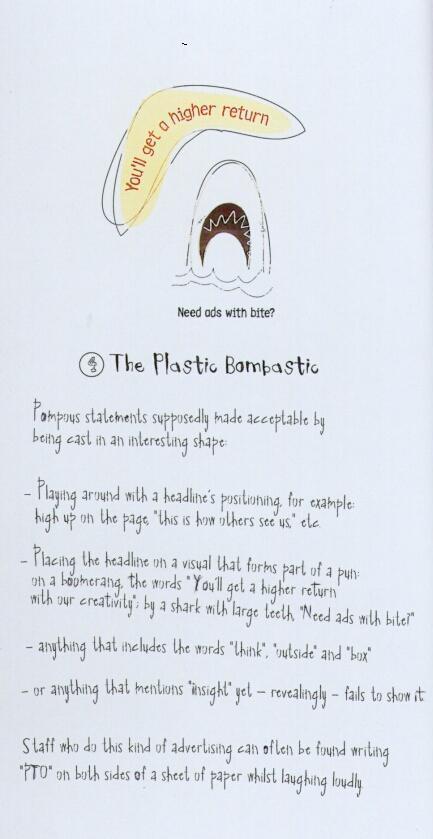 You'll get a higher return
Need ads with bite?
4 The Plastic Bombastic
Pompous statements supposedly made acceptable by
being cast in an interesting shape:
– Playing around with a headline's positioning, for example:
high up on the page, "this is how others see us," etc.
– Placing the headline on a visual that forms part of a pun:
on a boomerang, the words "You'll get a higher return
with our creativity"; by a shark with large teeth, "Need ads with bite?"
– anything that includes the words "think", "outside" and "box"
– or anything that mentions "insight" yet – revealingly – fails to show it.
Staff who do this kind of advertising can often be found writing
"PTO" on both sides of a sheet of paper whilst laughing loudly.